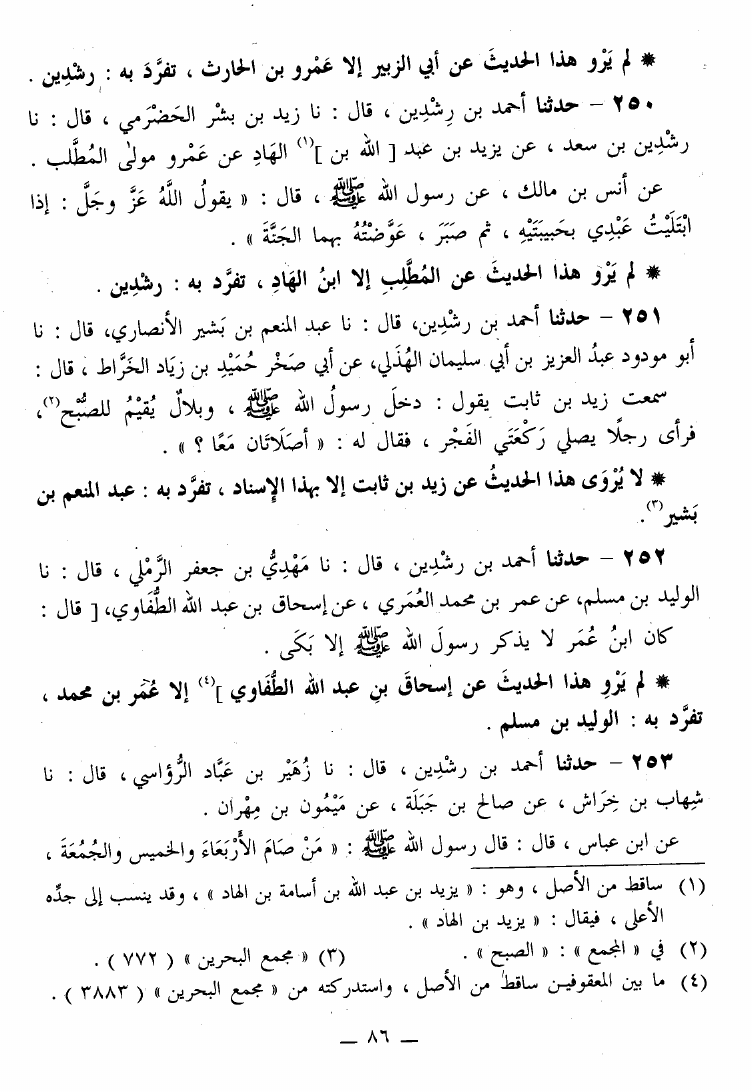 * لم يَرْو هذا الحديثَ عن أبي الزبير إلا عَمْرو بن الحارث ، تفرَّدَ به : رشْدِين .
٢٥٠ – حدثنا أحمد بن رِشْدِين ، قال : نا زيد بن بشْر الحَضْرَمي ، قال : نا
رشْدِين بن سعد ، عن يزيد بن عبد [ الله بن ](١) الهَادِ عن عَمْرو مولىٰ المُطَّلب .
عن أنس بن مالك ، عن رسول الله ﷺ ، قال : « يقولُ اللَّهُ عَزَّ وجَلَّ : إذا
ابْتَلَيْتُ عَبْدِي بحَبيبَتَيْهِ ، ثم صَبَرَ ، عَوَّضْتُهُ بهما الجَنَّةَ » .
* لم يَرْو هذا الحديثَ عن المُطَّلِبِ إلا ابنُ الهَادِ ، تفرَّد به : رشْدِين .
٢٥١ – حدثنا أحمد بن رشْدِين، قال : نا عبد المنعم بن بَشير الأنصاري، قال : نا
أبو مودود عبدُ العزيز بن أبي سليمان الهُذَلي، عن أبي صَخْر حُمَيْدِ بن زيَاد الخَرَّاط ، قال :
سمعت زيد بن ثابت يقول : دخلَ رسولُ الله ﷺ ، وبلالٌ يُقيْمُ للصُّبْح(٢)،
فرأى رجلًا يصلي رَكْعَتَي الفَجْر ، فقال له : « أصَلَاتَان مَعًا ؟ » .
* لا يُرْوَى هذا الحديثُ عن زيد بن ثابت إلا بهذا الإسناد ، تفرَّد به : عبد المنعم بن
بَشير(٣).
٢٥٢ – حدثنا أحمد بن رشْدِين ، قال : نا مَهْدِيُّ بن جعفر الرَّمْلي ، قال : نا
الوليد بن مسلم، عن عمر بن محمد العُمَري ، عن إسحاق بن عبد الله الطُّفَاوي، [ قال :
كان ابنُ عُمَر لا يذكر رسولَ الله ﷺ إلا بَكَى .
* لم يَرْوِ هذا الحديثَ عن إسحاقَ بنِ عبد الله الطُّفَاوي ](٤) إلا عُمَر بن محمد ،
تفرَّد به : الوليد بن مسلم .
٢٥٣ – حدثنا أحمد بن رشْدِين ، قال : نا زُهَيْر بن عَبَّاد الرُّؤاسي ، قال : نا
شِهاب بن خِرَاش ، عن صالح بن جَبَلَة ، عن مَيْمُون بن مِهْران .
عن ابن عباس ، قال : قال رسول الله ﷺ : « مَنْ صَامَ الأَرْبَعَاءَ والخميس والجُمُعَةَ ،
(١) ساقط من الأصل ، وهو : « يزيد بن عبد الله بن أسامة بن الهاد » ، وقد ينسب إلى جدِّه
الأعلى ، فيقال : « يزيد بن الهاد » .
(٢) في « المجمع » : « الصبح » . (٣) « مجمع البحرين » ( ٧٧٢ ) .
(٤) ما بين المعقوفين ساقط من الأصل ، واستدركته من « مجمع البحرين » ( ٣٨٨٣ ) .
— ٨٦ —